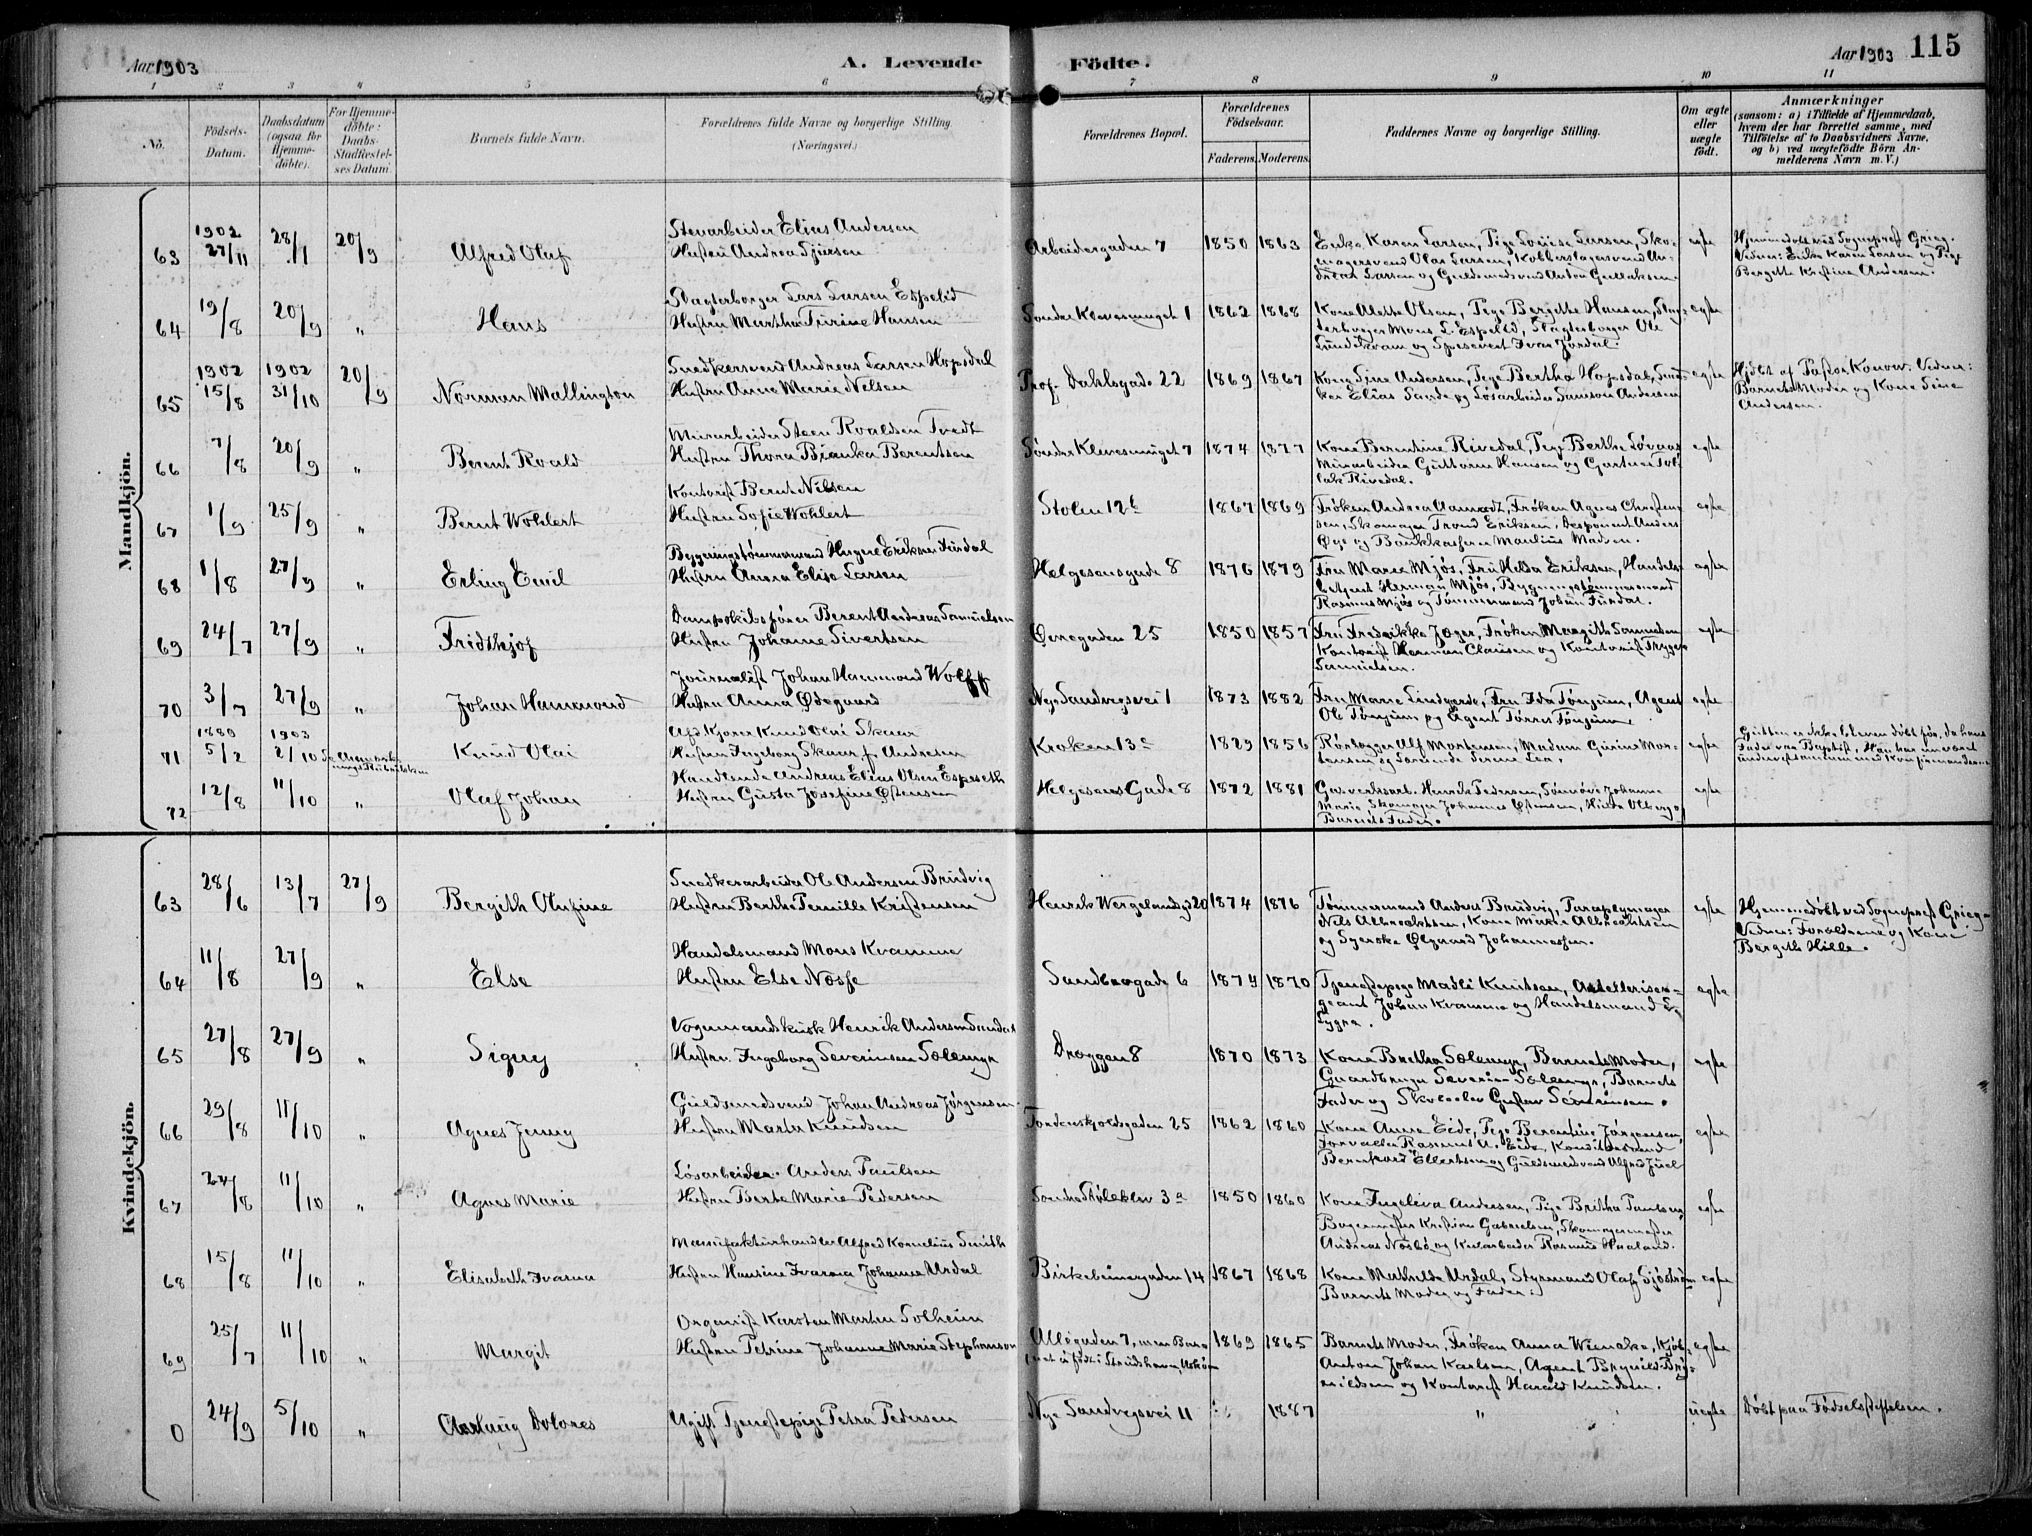 Aar 1903
A. Levende
Födte.
Aar 1903
115
1 2 3 4 5 6 7 8 9 10 11
No.
Födsels-Datum.
Daabsdatum (ogsaa for Hjemme-döbte).
For Hjemme-döbte: Daabs-Stadfæstel-ses Datum.
Barnets fulde Navn.
Forældrenes fulde Navne og borgerlige Stilling. (Næringsvei.)
Forældrenes Bopæl.
Forældrenes Födselsaar.
Faderens.
Moderens.
Faddernes Navne og borgerlige Stilling.
Om ægte eller uægte födt.
Anmærkninger
(saasom: a) i Tilfælde af Hjemmedaab, hvem der har forrettet samme, med Tilföielse af to Daabsvidners Navne, og b) ved uægtefödte Börn An-melderens Navn m. V.)
Mandkjön.
63 1902 27/11 28/1 20/9 Alfred Olaf
Stenarbeider Elias Andersen
Hustru Andrea
Arbeidergaden 7 1850 1863
Enke Karen Larsen, Pige Lovise Larsen, Sko-
magersvend Olas Larsen, Kobberslagersvend An-
dreas Larsen og Guldsmedsvend Anton Gullaksen
ægte
Hjemmedøbt ved Sogneprest Grieg.
Vidner: Enke Karen Larsen og Pige
Bergette Kristine Andersen.
64 19/8 20/9 " Hans
Slagterborger Lars Larsen Espelid
Hustru Martha Turine Hansen
Søndre Klevesmuget 1 1862 1868
Kone Alette Olsen, Pige Bergithe Hansen, Slag-
terborger Mons L. Espelid, Slagterborger Ole
og Ivar Jordal.
ægte
65 1902 15/8 1902 31/10 20/9 Norman Wallington
Snedkersvend Andreas Larsen Hopsdal
Hustru Anna Marie Nilsen
Prof. Dahlsgade 22 1869 1867
Kone Sine Andersen, Pige Bertha Hopsdal, Sned-
ker Elias Sande og Løsarbeider Samson Andersen
ægte
Hjdøbt af Pastor Konow. Vidner:
Barnets Moder og Kone Sine
Andersen.
66 7/8 20/9 " Berent Roald
Murarbeider Steen Roaldsen Tvedt
Hustru Thora Bianka Berentsen
Søndre Klevesmuget 7 1874 1877
Kone Berentine Rivedal, Pige Berthe Løvaas
Murarbeider Guttorm Hansen og Gartner Tol-
lak Rivedal.
ægte
67 1/9 25/9 " Bernt Wohlert
Kontorist Bernt Nilsen
Hustru Sofie Wohlert
Stolen 12 b 1867 1869
Frøken Andrea Aamodt, Frøken Agnes Christen-
sen, Skomager Trond Eriksen, Disponent Anders
Øye og Bankkasserer Maulius Madsen.
ægte
68 1/8 27/9 " Erling Emil
Bygningstømmermand Eriksen Furdal
Hustru Anna Elise Larsen
Helgesensgade 8 1876 1879
Fru Marie Mjøs, Fru Helga Eriksen, Handels-
betjent Herman Mjøs, Bygningstømmermand
Rasmus Mjøs og Tømmermand Johan Furdal.
ægte
69 24/7 27/9 " Fridthjof
Dampskibsfører Berent Andreas Samuelsen
Hustru Johanne Sivertsen
Øvregaden 25 1850 1857
Fru Fredrikke Jæger, Frøken Margith Samuelsen
Kontorist Herman Clausen og Kontorist Trygve
Samuelsen.
ægte
70 3/7 27/9 " Johan Hammond
Journalist Johan Hammond Wolff
Hustru Anna Ødegaard
Nye Sandvigsvei 1 1873 1882
Fru Marie Lindgaard, Fru Ida Tønjum, Agent
Ole Tønjum og Agent Tørres Tønjum.
ægte
71 1880 5/2 1903 2/10 Knud Olai
Kjører Knud Olai Skaar
Hustru Ingeborg Skaar f. Andersen
Kroken 13 c 1829 1856
Rørlægger Alf Mortensen, Madam Gurine Mor-
tensen og Lærerinde Serine Lea.
ægte
Gutten er ikke bleven døbt før, da hans
Fader var Baptist. Han har
undervist sammen med Konfirmanderne
72 12/8 11/10 " Olaf Johan
Handlende Andreas Elias Olsen Espeseth
Hustru Gusta Josefine Østensen
Helgesens Gade 8 1872 1881
Gasverksarb. Henrik Pedersen, Sømøve Johanne
Marie Skomager Johannes Østensen, Hilda Olberg og
Barnets Fader.
ægte
Kvindekjön.
63 28/6 13/7 27/9 Bergith Olufine
Snedkerarbeider Ole Andersen Brudvig
Hustru Berthe Pernille Kristensen
Henrik Wergelandsg 20 1874 1876
Tømmermand Anders Brudvig, Paraplymager
Nils Albrecktsen, Kone Mikke Albrecktsen
og Syerske Ølgaard Johannessen.
ægte
Hjemmedøbt ved Sogneprest Grieg
Vidner: Forældrene og Kone
Bergeth Hille.
64 11/8 27/9 " Else
Handelsmand Mons Kramme
Hustru Else Nesse
Sandbrogade 6 1874 1870
Tjenestepige Madli Knutsen, Artelleriser-
geant Johan Kramme og Handelsmand L
Lygra.
ægte
65 27/8 27/9 " Signy
Vognmandskusk Henrik Andersen Sandal
Hustru Ingeborg Severinsen Solemyr
Dræggen 8 1870 1873
Kone Bretha Solemyr, Barnets Moder,
Gaardbruger Severin Solemyr, Barnets
Fader og Skoleelev Gustav Severinsen.
ægte
66 29/8 11/10 " Agnes Jenny
Guldsmedsvend Johan Andreas Jørgensen
Hustru Marta Knudsen
Tordenskjoldsgaden 25 1862 1860
Kone Anna Eide, Pige Berentine Jørgensen,
Forvalter Rasmus A. Eide, Konditorsvend
Bernhard Ellertsen og Guldsmedsvend Alfred Juel
ægte
67 24/8 11/10 " Agnes Marie
Løsarbeider Anders Paulsen
Hustru Berte Marie Pedersen
3 a 1850 1860
Kone Ingeleiva Andersen, Pige Britha Paulsen,
Bagermester Kristian Gabrielsen, Skomagermester
Andreas Nesbø og Kularbeider Rasmus Haaland.
ægte
68 15/8 11/10 " Elisabeth Ivarna
Manufakturhandler Alfred Kornelius Smith
Hustru Hansine Ivarna Johanne Urdal
Birkebeinergaden 14 1867 1868
Kone Mathilde Urdal, Styrmand Olaf Sjøstrøm
Barnets Moder og Fader.
ægte
69 25/7 11/10 " Margit
Organist Karsten Marten Solheim
Hustru Petrine Johanne Marie Stephansen
Allégaden 7, men Bar-
net er født i Strudshavn, Askøen
1869 1865
Barnets Moder, Frøken Anna Wienecke, Kjøb.
Anton Johan Karlsen, Agent Brynild Bry-
nildsen og Kontorist Harald Knudsen.
ægte
0 24/9 5/10 " Aslaug Dolores
Ugift Tjenestepige Petra Pedersen
Nye Sandvigsvei 11 " 1887 "
uægte
Døbt paa Fødselsstiftelsen.